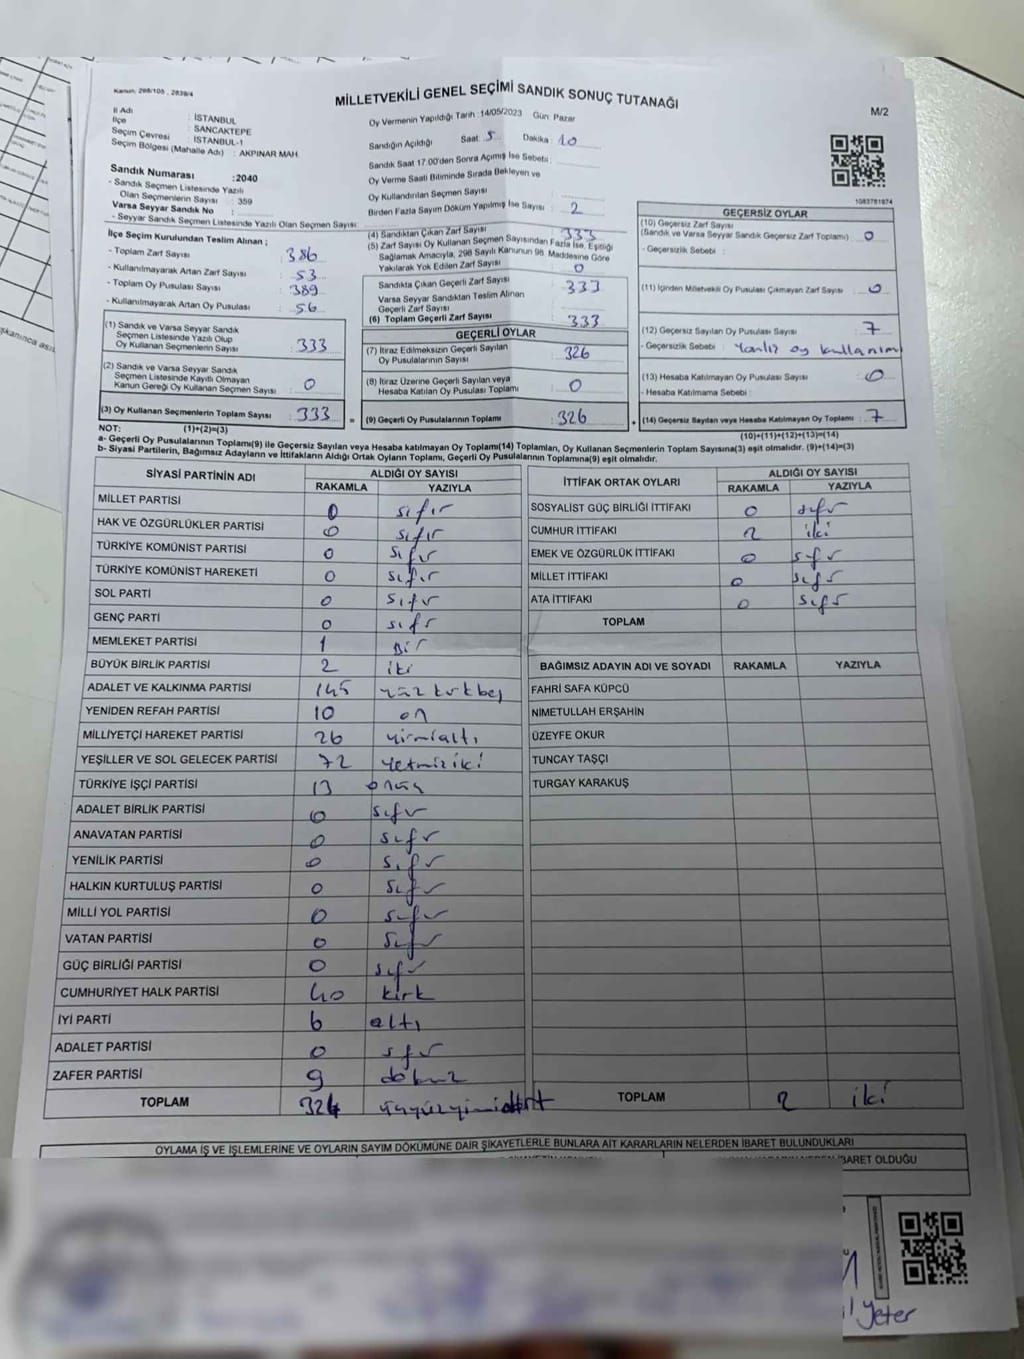 Kanun: 298/105 , 2839/4
MİLLETVEKİLİ GENEL SEÇİMİ SANDIK SONUÇ TUTANAĞI
M/2
İl Adı : İSTANBUL
İlçe : SANCAKTEPE
Seçim Çevresi : İSTANBUL-1
Seçim Bölgesi (Mahalle Adı) : AKPINAR MAH
Sandık Numarası : 2040
- Sandık Seçmen Listesinde Yazılı
Olan Seçmenlerin Sayısı : 359
Varsa Seyyar Sandık No :
- Seyyar Sandık Seçmen Listesinde Yazılı Olan Seçmen Sayısı:
Oy Vermenin Yapıldığı Tarih :14/05/2023 Gün: Pazar
Sandığın Açıldığı Saat: 5 Dakika : 10
Sandık Saat 17.00'den Sonra Açılmış İse Sebebi :
Oy Verme Saati Bitiminde Sırada Bekleyen ve
Oy Kullandırılan Seçmen Sayısı :
Birden Fazla Sayım Döküm Yapılmış İse Sayısı : 2
1083781874
İlçe Seçim Kurulundan Teslim Alınan ;
- Toplam Zarf Sayısı : 386
- Kullanılmayarak Artan Zarf Sayısı : 53
- Toplam Oy Pusulası Sayısı : 389
- Kullanılmayarak Artan Oy Pusulası : 56
(1) Sandık ve Varsa Seyyar Sandık
Seçmen Listesinde Yazılı Olup
Oy Kullanan Seçmenlerin Sayısı : 333
(2) Sandık ve Varsa Seyyar Sandık
Seçmen Listesinde Kayıtlı Olmayan
Kanun Gereği Oy Kullanan Seçmen Sayısı : 0
(3) Oy Kullanan Seçmenlerin Toplam Sayısı : 333
(4) Sandıktan Çıkan Zarf Sayısı : 333
(5) Zarf Sayısı Oy Kullanan Seçmen Sayısından Fazla İse, Eşitliği
Sağlamak Amacıyla, 298 Sayılı Kanunun 98. Maddesine Göre
Yakılarak Yok Edilen Zarf Sayısı : 0
Sandıkta Çıkan Geçerli Zarf Sayısı : 333
Varsa Seyyar Sandıktan Teslim Alınan
Geçerli Zarf Sayısı :
(6) Toplam Geçerli Zarf Sayısı : 333
GEÇERLİ OYLAR
(7) İtiraz Edilmeksizin Geçerli Sayılan
Oy Pusulalarının Sayısı : 326
(8) İtiraz Üzerine Geçerli Sayılan veya
Hesaba Katılan Oy Pusulası Toplamı : 0
= (9) Geçerli Oy Pusulalarının Toplamı : 326
GEÇERSİZ OYLAR
(10) Geçersiz Zarf Sayısı
(Sandık ve Varsa Seyyar Sandık Geçersiz Zarf Toplamı) : 0
- Geçersizlik Sebebi :
(11) İçinden Milletvekili Oy Pusulası Çıkmayan Zarf Sayısı : 0
(12) Geçersiz Sayılan Oy Pusulası Sayısı : 7
- Geçersizlik Sebebi : Yanlız oy kullanım
(13) Hesaba Katılmayan Oy Pusulası Sayısı : 0
- Hesaba Katılmama Sebebi :
+ (14) Geçersiz Sayılan veya Hesaba Katılmayan Oy Toplamı : 7
NOT: (1)+(2)=(3) (10)+(11)+(12)+(13)=(14)
a- Geçerli Oy Pusulalarının Toplamı(9) ile Geçersiz Sayılan veya Hesaba katılmayan Oy Toplamı(14) Toplamları, Oy Kullanan Seçmenlerin Toplam Sayısına(3) eşit olmalıdır. (9)+(14)=(3)
b- Siyasi Partilerin, Bağımsız Adayların ve İttifakların Aldığı Ortak Oyların Toplamı, Geçerli Oy Pusulalarının Toplamına(9) eşit olmalıdır.
SİYASİ PARTİNİN ADI ALDIĞI OY SAYISI
RAKAMLA YAZIYLA
MİLLET PARTİSİ 0 sıfır
HAK VE ÖZGÜRLÜKLER PARTİSİ 0 sıfır
TÜRKİYE KOMÜNİST PARTİSİ 0 sıfır
TÜRKİYE KOMÜNİST HAREKETİ 0 sıfır
SOL PARTİ 0 sıfır
GENÇ PARTİ 0 sıfır
MEMLEKET PARTİSİ 1 Bir
BÜYÜK BİRLİK PARTİSİ 2 iki
ADALET VE KALKINMA PARTİSİ 145 yüz kırkbeş
YENİDEN REFAH PARTİSİ 10 on
MİLLİYETÇİ HAREKET PARTİSİ 26 yirmialtı
YEŞİLLER VE SOL GELECEK PARTİSİ 72 yetmiş iki
TÜRKİYE İŞÇİ PARTİSİ 13 onüç
ADALET BİRLİK PARTİSİ 0 sıfır
ANAVATAN PARTİSİ 0 sıfır
YENİLİK PARTİSİ 0 sıfır
HALKIN KURTULUŞ PARTİSİ 0 sıfır
MİLLİ YOL PARTİSİ 0 sıfır
VATAN PARTİSİ 0 sıfır
GÜÇ BİRLİĞİ PARTİSİ 0 sıfır
CUMHURİYET HALK PARTİSİ 40 kırk
İYİ PARTİ 6 altı
ADALET PARTİSİ 0 sıfır
ZAFER PARTİSİ 9 dokuz
TOPLAM 324 üçyüzyirmidört
İTTİFAK ORTAK OYLARI ALDIĞI OY SAYISI
RAKAMLA YAZIYLA
SOSYALİST GÜÇ BİRLİĞİ İTTİFAKI 0 sıfır
CUMHUR İTTİFAKI 2 iki
EMEK VE ÖZGÜRLÜK İTTİFAKI 0 sıfır
MİLLET İTTİFAKI 0 sıfır
ATA İTTİFAKI 0 sıfır
TOPLAM
BAĞIMSIZ ADAYIN ADI VE SOYADI RAKAMLA YAZIYLA
FAHRİ SAFA KÜPCÜ
NİMETULLAH ERŞAHİN
ÜZEYFE OKUR
TUNCAY TAŞÇI
TURGAY KARAKUŞ
TOPLAM 2 iki
OYLAMA İŞ VE İŞLEMLERİNE VE OYLARIN SAYIM DÖKÜMÜNE DAİR ŞİKAYETLERLE BUNLARA AİT KARARLARIN NELERDEN İBARET BULUNDUKLARI
BARET OLDUĞU
Yeter